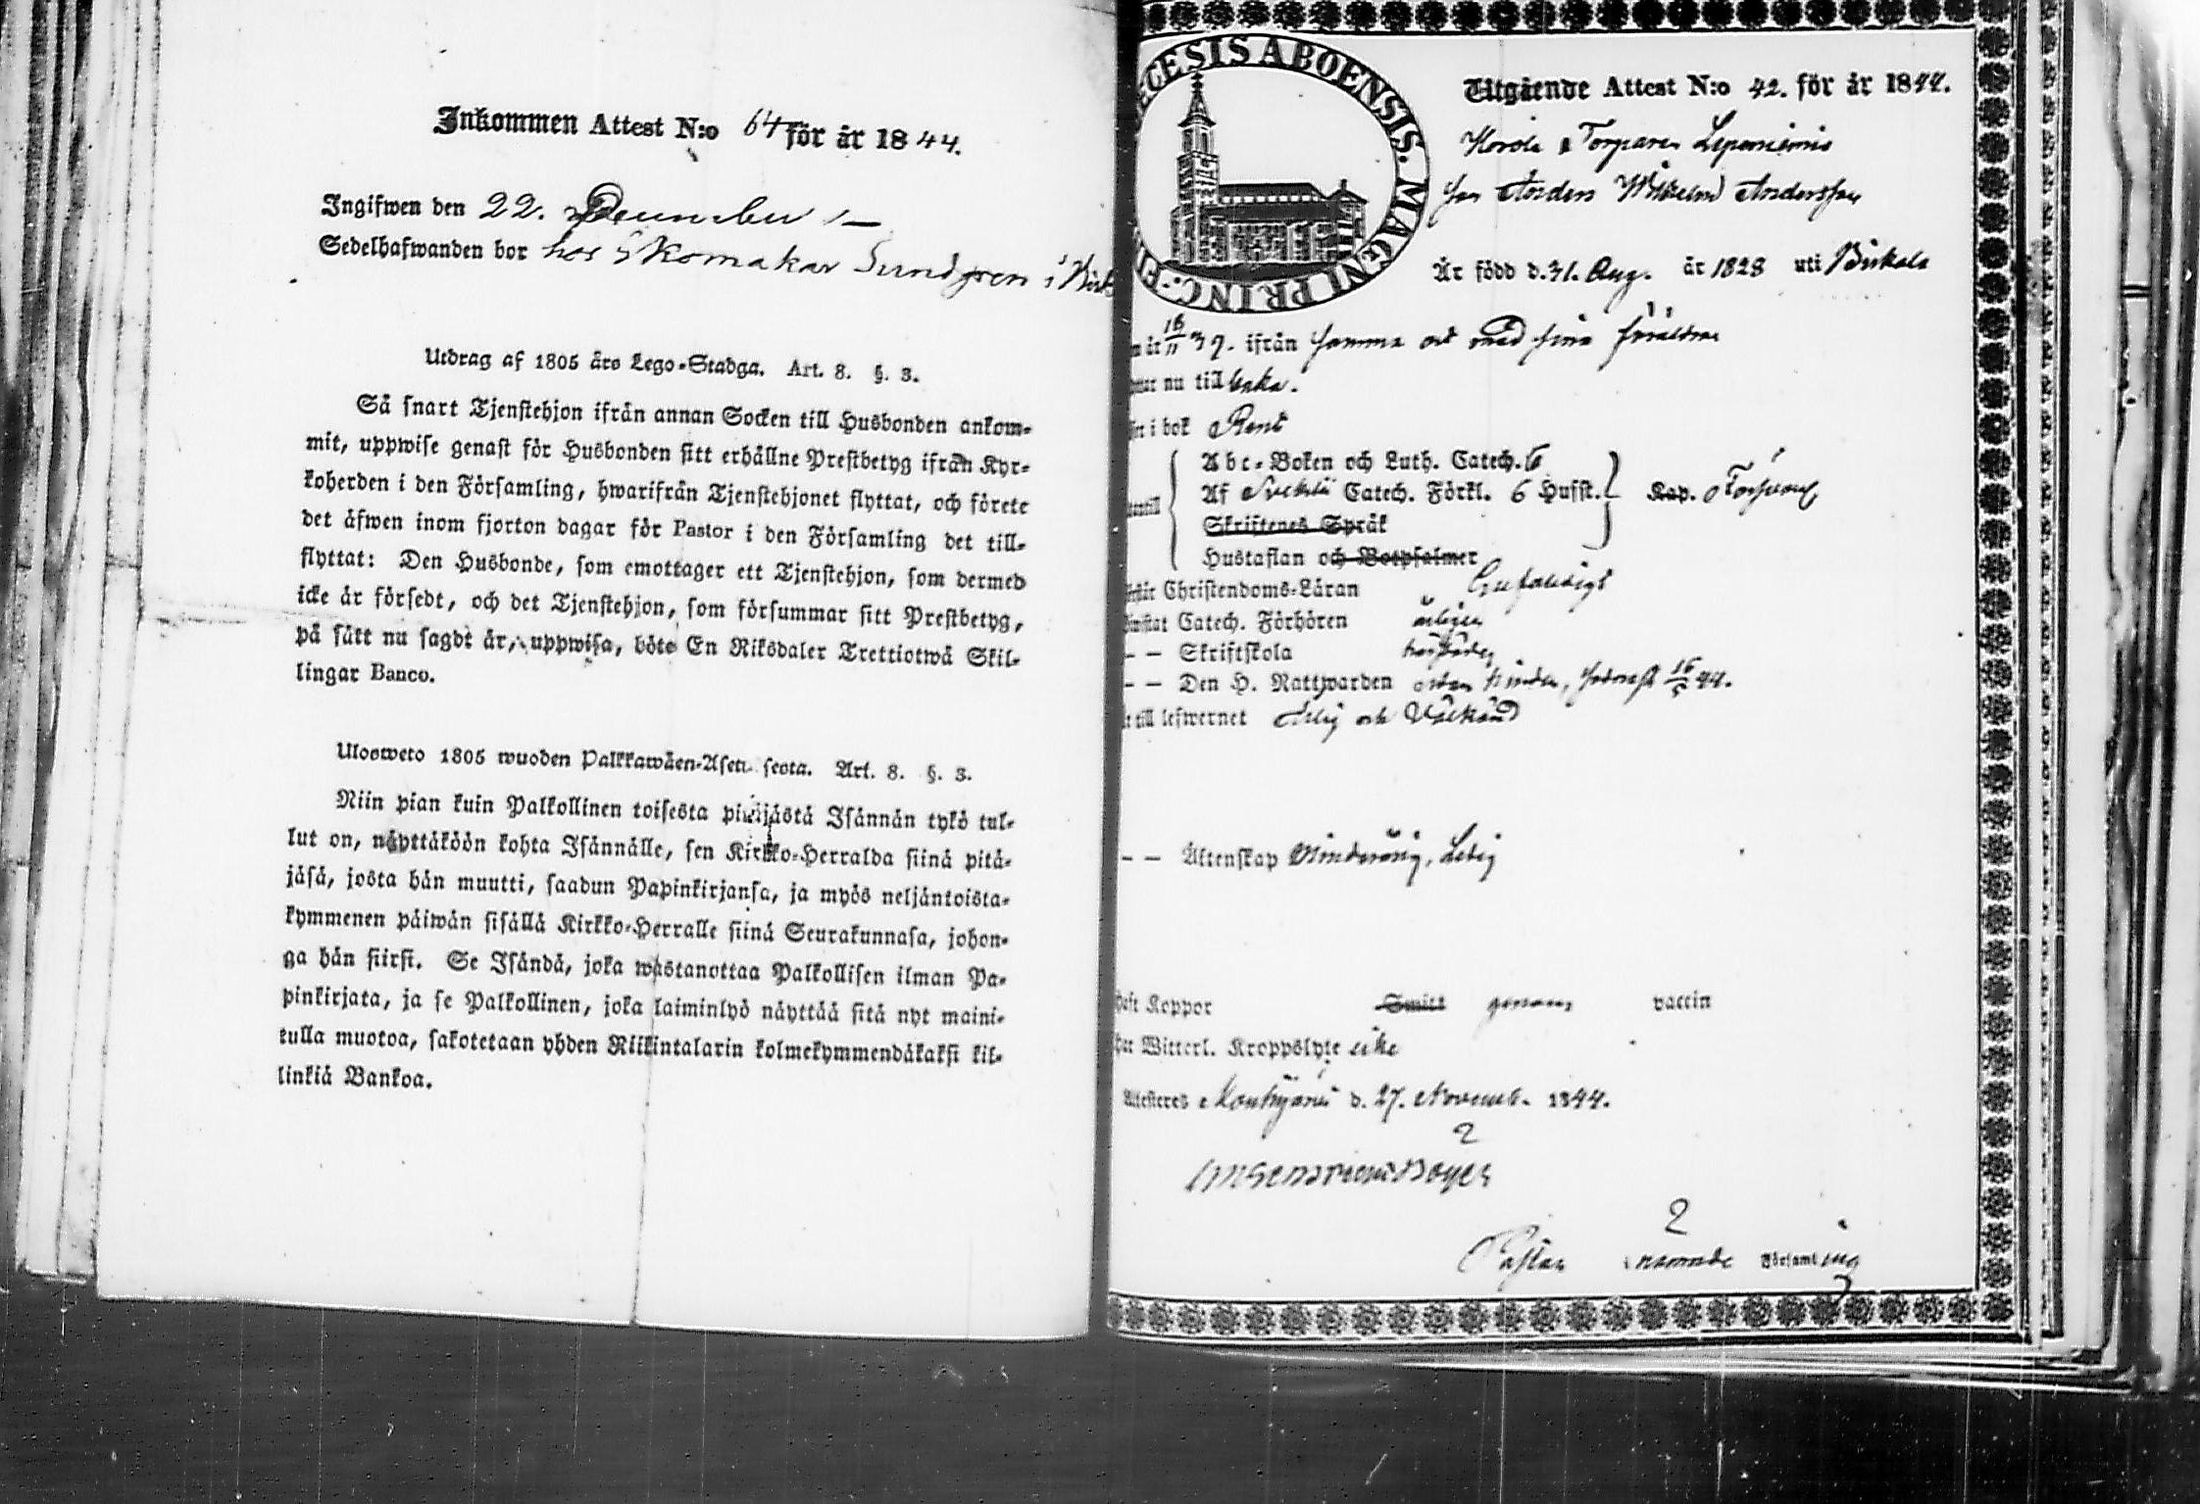 Inkommen Attest N:o 64 för år 1844.
Ingifwen den 22. December
Sedelhafwanden bor hos Skomakar Sundgren i
Utdrag af 1805 års Lego-Stadga. Art. 8. §. 3.
Så snart Tjenstehjon ifrån annan Socken till Husbonden ankom-
mit, uppwise genast för Husbonden sitt erhållne Prestbetyg ifrån Kyr-
koherden i den Församling, hwarifrån Tjenstehjonet flyttat, och förete
det äfwen inom fjorton dagar för Pastor i den Församling det till-
flyttat: Den Husbonde, som emottager ett Tjenstehjon, som dermed
icke är försedt, och det Tjenstehjon, som försummar sitt Prestbetyg,
på sätt nu sagdt är, uppwisa, böte En Riksdaler Trettiotwå Skil-
lingar Banco.
Ulosweto 1805 wuoden Palkkawäen-Asetuksesta. Art. 8. §. 3.
Niin pian kuin Palkollinen toisesta pitäjästä Isännän tykö tul-
lut on, näyttäköön kohta Isännälle, sen Kirkko-Herralda siinä pitä-
jäsä, josta hän muutti, saadun Papinkirjansa, ja myös neljäntoista-
kymmenen päiwän sisällä Kirkko-Herralle siinä Seurakunnasa, johon-
ga hän siirsi. Se Isändä, joka wastanottaa Palkollisen ilman Pa-
pinkirjata, ja se Palkollinen, joka laiminlyö näyttää sitä nyt maini-
tulla muotoa, sakotetaan yhden Riikintalarin kolmekymmendäkaksi kil-
linkiä Bankoa.
ECESIS ABOENSIS. MAGNI PRINC. FI
Utgående Attest N:o 42. för år 1844.
Torparen
son Anders Wilhelm Andersson
Är född d. 31. Aug. år 1828 uti Birkala
16/11 39. ifrån samma ort med sina föräldrar
nu tillbaka.
i bok Rent
Abc-Boken och Luth. Catech. 6
Af Svebilii Catech. Förkl. 6 Hufst. Kap.
Skriftenes Språk
Hustaflan och Botpsalmer
Christendoms-Läran
Catech. Förhören årligen
– – Skriftskola
– – Den H. Nattwarden 44.
till lefwernet Ärlig och Wälkänd
– – Äktenskap Minderårig, Ledig
Haft Koppor Smitt genom vaccin
Har Witterl. Kroppslyte icke
Attesteras d. 27. Novemb. 1844.
Pastor i nämnde Församling